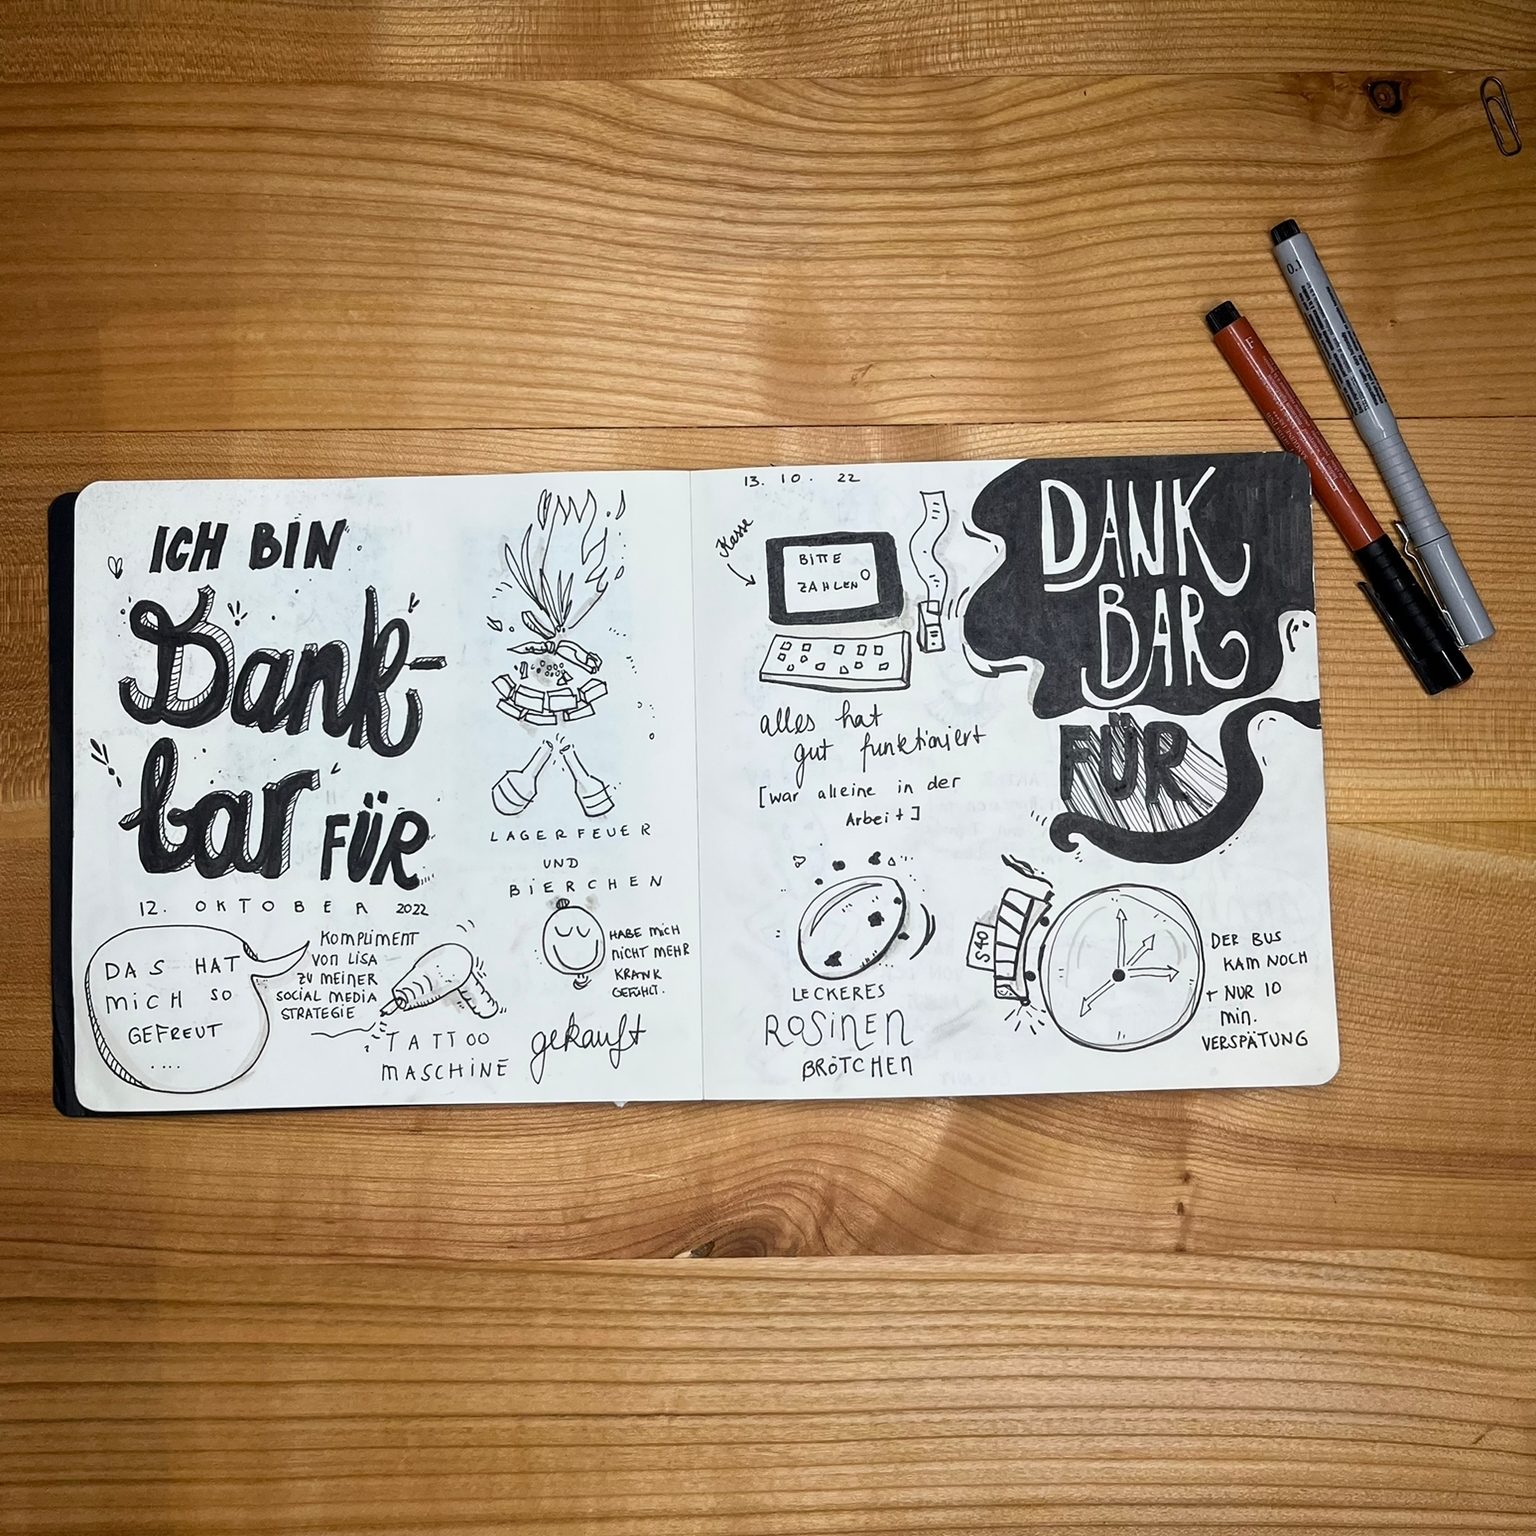 ICH BIN
Dank-
bar FÜR
12. OKTOBER 2022
DAS HAT
MICH SO
GEFREUT
....
KOMPLIMENT
VON LISA
ZU MEINER
SOCIAL MEDIA
STRATEGIE
TATTOO
MASCHINE
gekauft
LAGERFEUER
UND
BIERCHEN
HABE MICH
NICHT MEHR
KRANK
GEFÜHLT.
13. 10. 22
Kasse
BITTE
ZAHLEN
alles hat
gut funktioniert
[war alleine in der
Arbeit]
LECKERES
ROSINEN
BRÖTCHEN
DANK
BAR
FÜR
S40
DER BUS
KAM NOCH
+ NUR 10
min.
VERSPÄTUNG
0.1
F